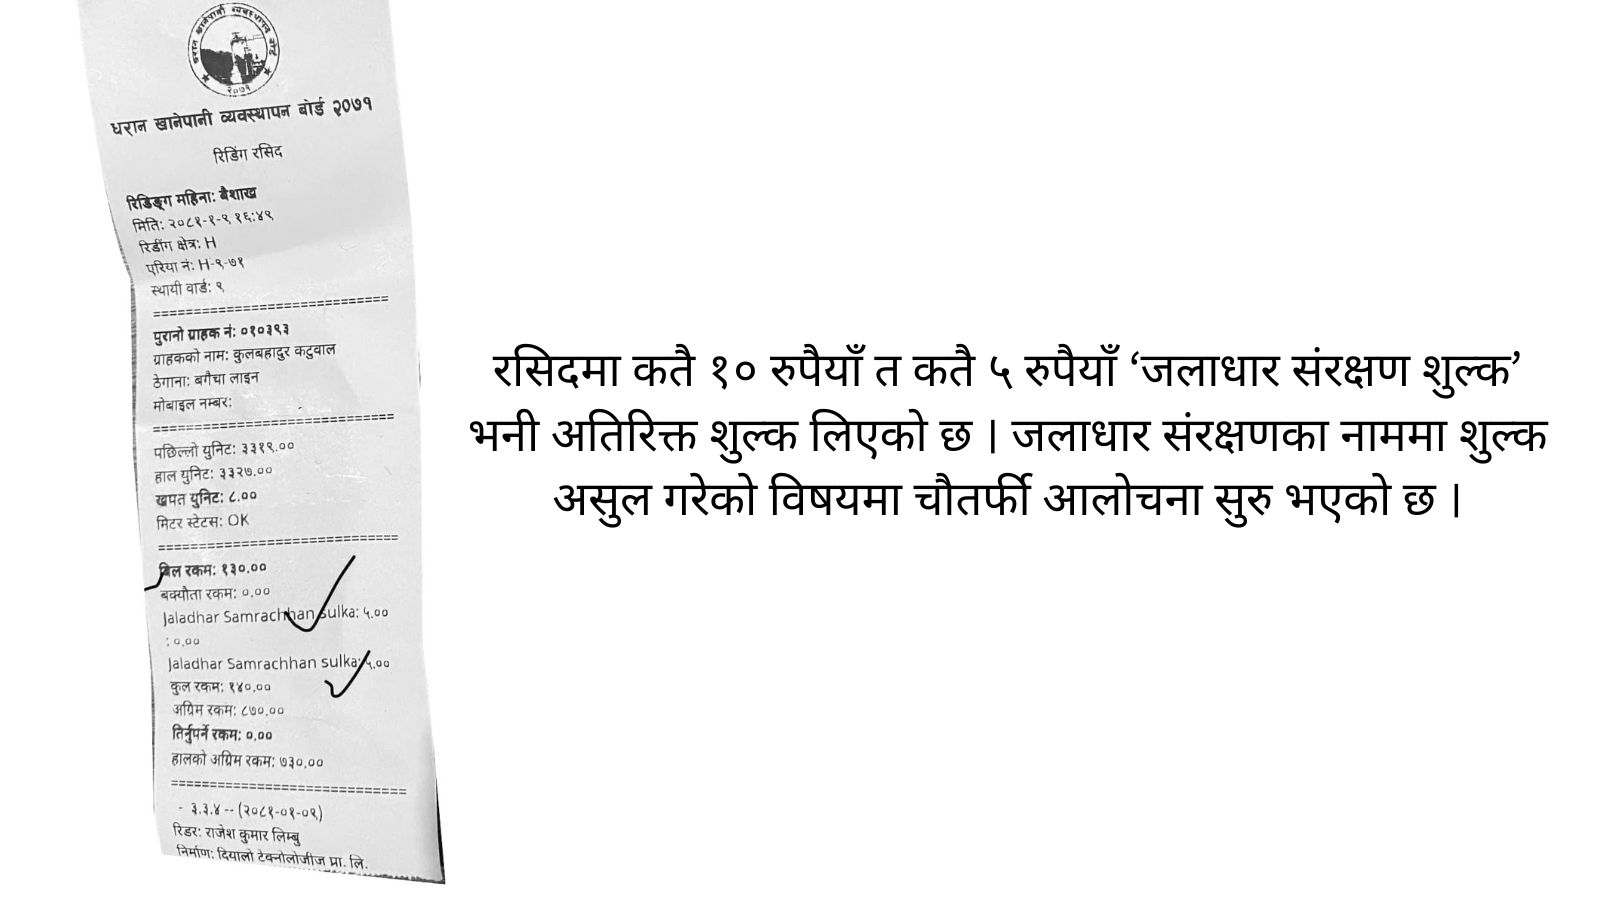 धरान खानेपानी व्यवस्थापन बोर्ड
२०७१
धरान खानेपानी व्यवस्थापन बोर्ड २०७१
रिडिंग रसिद
रिडिङ्ग महिना: बैशाख
मिति: २०८१-१-९ १६:४९
रिडींग क्षेत्र: H
एरिया नं: H-९-७१
स्थायी वार्ड: ९
==============================
पुरानो ग्राहक नं: ०१०३९३
ग्राहकको नाम: कुलबहादुर कटुवाल
ठेगाना: बगैचा लाइन
मोबाइल नम्बर:
==============================
पछिल्लो युनिट: ३३१९.००
हाल युनिट: ३३२७.००
खपत युनिट: ८.००
मिटर स्टेटस: OK
==============================
बिल रकम: १३०.००
बक्यौता रकम: ०.००
Jaladhar Samrachhan sulka: ५.००
: ०.००
Jaladhar Samrachhan sulka: ५.००
कुल रकम: १४०.००
अग्रिम रकम: ८७०.००
तिर्नुपर्ने रकम: ०.००
हालको अग्रिम रकम: ७३०.००
==============================
- ३.३.४ -- (२०८१-०१-०९)
रिडर: राजेश कुमार लिम्बु
निर्माण: दियालो टेक्नोलोजीज प्रा. लि.
रसिदमा कतै १० रुपैयाँ त कतै ५ रुपैयाँ ‘जलाधार संरक्षण शुल्क’
भनी अतिरिक्त शुल्क लिएको छ । जलाधार संरक्षणका नाममा शुल्क
असुल गरेको विषयमा चौतर्फी आलोचना सुरु भएको छ ।